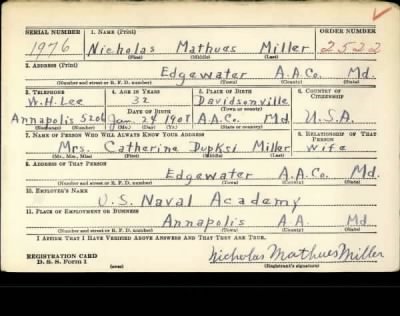 SERIAL NUMBER 1. NAME (Print) ORDER NUMBER
1976 Nicholas Mathues Miller 2522
(First) (Middle) (Last)
2. ADDRESS (Print)
Edgewater A.A.Co. Md.
(Number and street or R. F. D. number) (Town) (County) (State)
3. TELEPHONE 4. AGE IN YEARS 5. PLACE OF BIRTH 6. COUNTRY OF CITIZENSHIP
W.H.Lee 32 Davidsonville
DATE OF BIRTH (Town or county)
Annapolis 5206 Jan. 24 1908 A.A.Co. Md U.S.A.
(Exchange) (Number) (Mo.) (Day) (Yr.) (State or country)
7. NAME OF PERSON WHO WILL ALWAYS KNOW YOUR ADDRESS 8. RELATIONSHIP OF THAT PERSON
Mrs. Catherine Dupksi Miller Wife
(Mr., Mrs., Miss) (First) (Middle) (Last)
9. ADDRESS OF THAT PERSON
Edgewater A.A.Co. Md.
(Number and street or R. F. D. number) (Town) (County) (State)
10. EMPLOYER'S NAME
U.S. Naval Academy
11. PLACE OF EMPLOYMENT OR BUSINESS
Annapolis A.A. Md
(Number and street or R. F. D. number) (Town) (County) (State)
I AFFIRM THAT I HAVE VERIFIED ABOVE ANSWERS AND THAT THEY ARE TRUE.
REGISTRATION CARD Nicholas Mathues Miller
D. S. S. Form 1 (over) (Registrant's signature)